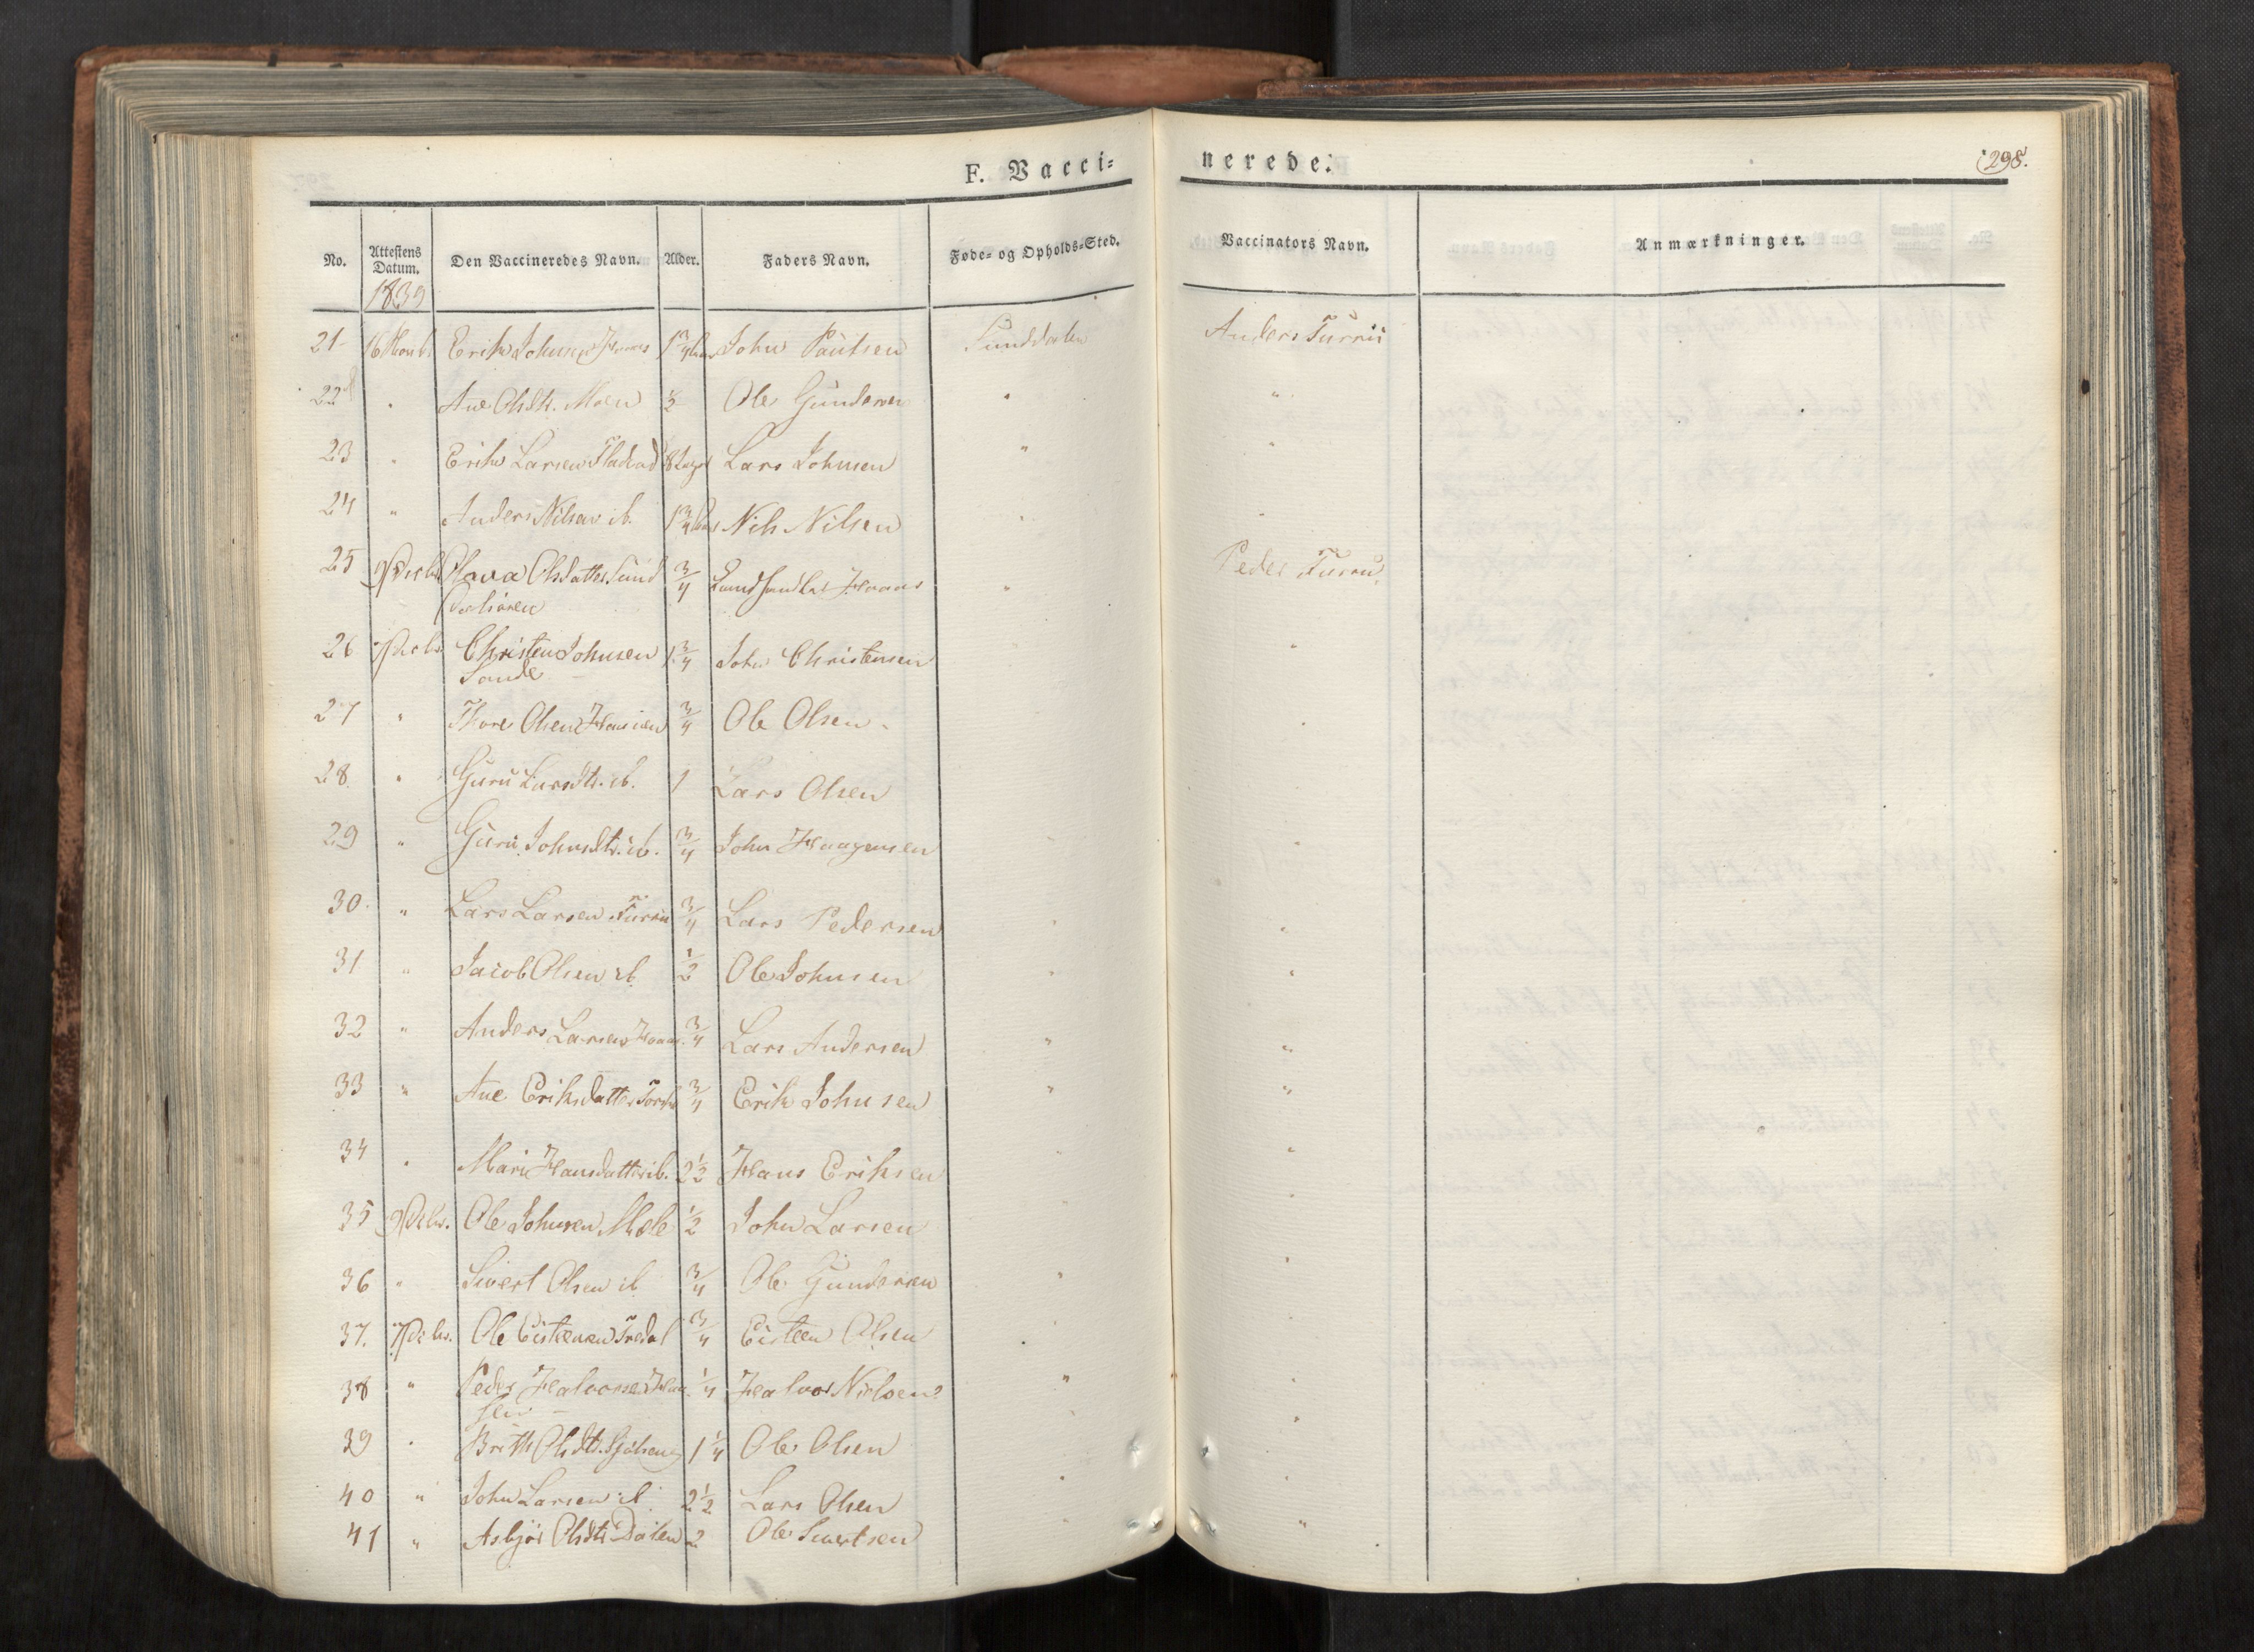 F. Vacci=
nerede.
298.
No. Attestens Datum. Den Vaccineredes Navn. Alder. Faders Navn. Føde= og Opholds=Sted. Vaccinators Navn. Anmærkninger.
1839
21 Erik Johnsen 1 3/4 John Paulsen Sunddalen Anders Furru
22 " Ane Olsdtr. Moen 1/2 Ole Gundersen " "
23 " Erik Larsen Lars Johnsen " "
24 " Anders Nilsen ib. 1 3/4 Nils Nilsen " "
25 Olava Olsdatter Sund 3/4 Landhandler " Peder Furru
26 Christen Johnsen 1 3/4 John Christensen "
Sande
27 " Thore Olsen 3/4 Ole Olsen "
28 " Guru Larsdtr. ib. 1 Lars Olsen
29 " Guru Johnsdtr. ib. 3/4 John Haagensen " "
30. " Lars Larsen Furru 3/4 Lars Pedersen " "
31 " Jacob Olsen ib 1/2 Ole Johnsen " "
32 " Anders Larsen 3/4 Lars Andersen " "
33 " Ane Eriksdatter 3/4 Erik Johnsen " "
34 " Mari Hansdatter ib. 2 1/2 Hans Eriksen " "
35 Ole Johnsen Mæle 1/2 John Larsen " "
36 " Sivert Olsen ib 3/4 Ole Gundersen " "
37. Ole Eisteensen Tredal 3/4 Eisteen Olsen " "
38 " Peder Halvorsen 1/4 Halvor Nielsen " "
39 " Brith Olsdtr. 1 1/4 Ole Olsen " "
40 " John Larsen ib 2 1/2 Lars Olsen " "
41 " Asbjør Olsdtr Dalen 2 Ole Sivertsen " "